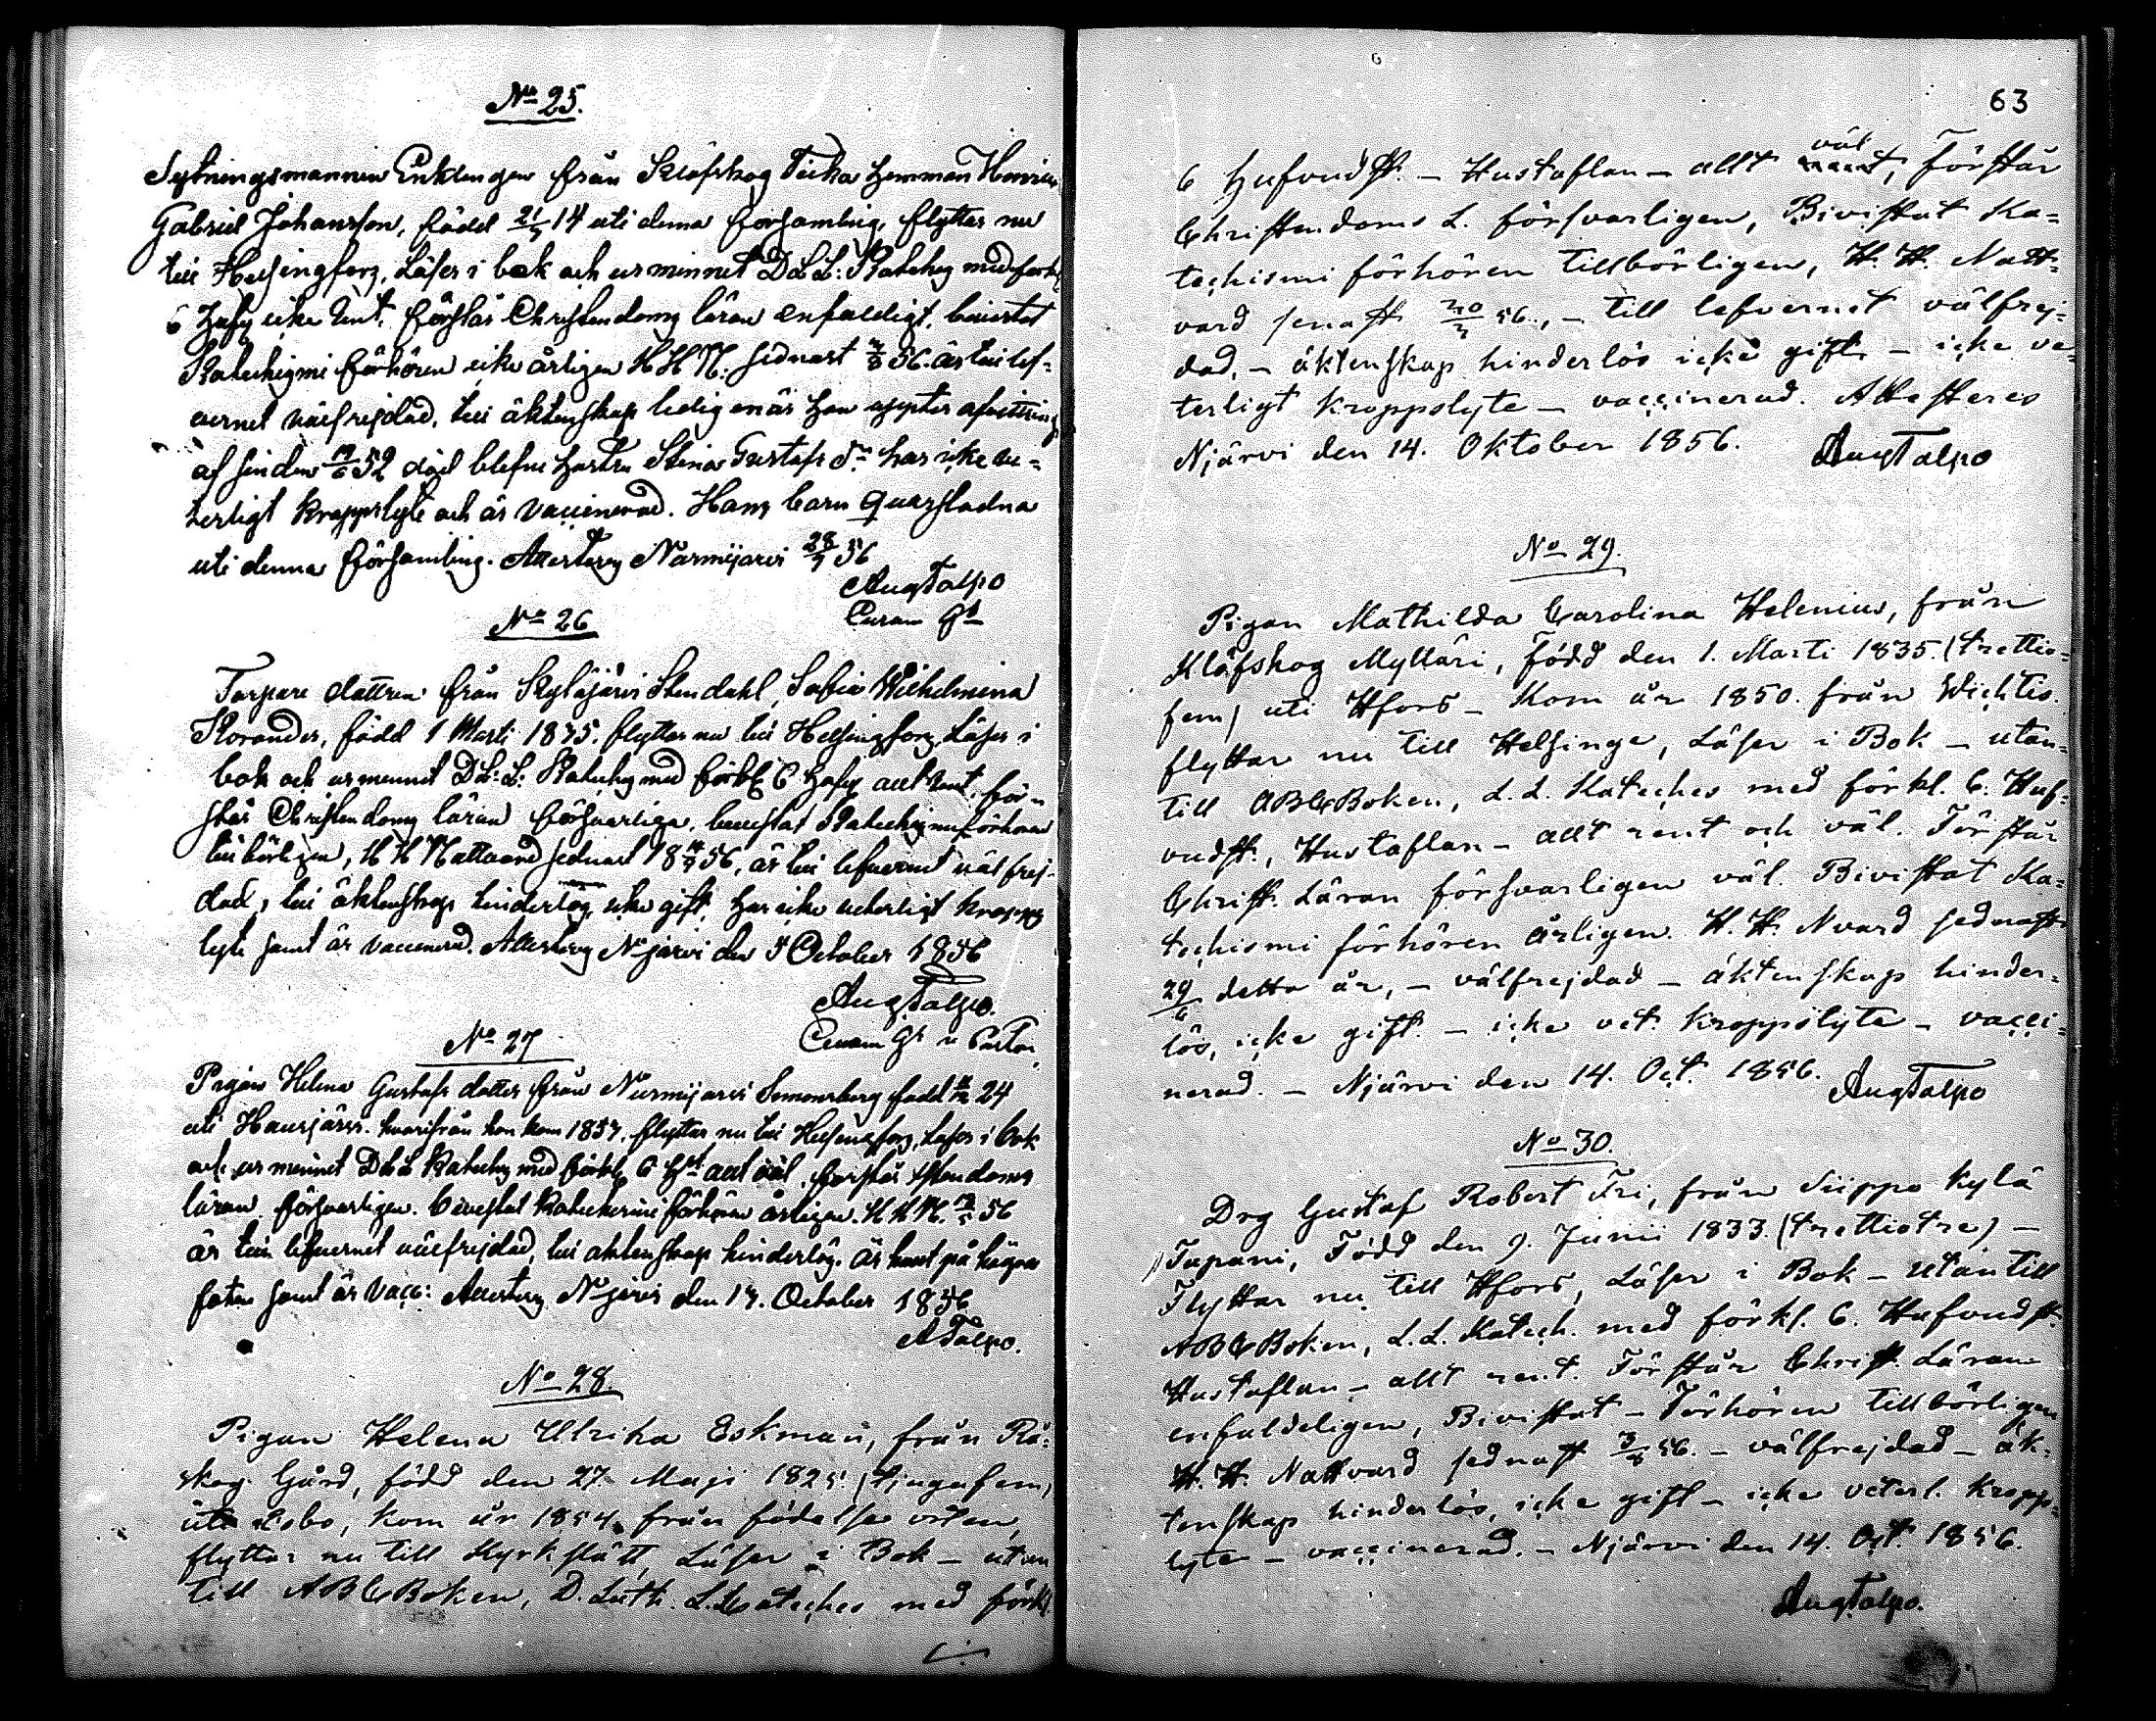 No 25.
Sytningsmannen Enklingen från Klöfskog Heman Henric
Gabriel Johansson, född 21/5 14 uti denna församling, flyttar nu
till Helsingfors, Läser i bok och ur minnet D L L: Kateches med förkl
6 Hufv icke rent. förstår Christendoms läran enfaldigt, bevistat
Katechismi förhören icke årligen H H N: sednast 56. är till lef-
vernet välfrejdad, till äktenskap ledig enär han uppter afvittring
af sin den 19/6 52 död blefne hustru Stina Gustafs dr har icke ve-
terligt kroppslyte och är vaccinerad. Hans barn quarstadna
uti denna församling. Attesteras Nurmijärvi 28/9 56
AugTalpo
Curam Gt
No 26
Torpare dottren från Skylajärvi Stendahl, Sofia Wilhelmina
Korander, född 1 Marti 1835. flyttar nu till Helsingfors, Läser i
bok och ur minnet D L: L: Kateches med förkl 6 Hufv allt rent, för-
står Christendoms läran försvarliga, bevistat Katechismi förhören
tillbörligen, H H Nattvard sednast 56, är till lefvernet välfrej-
dad, till äktenskap hinderlös, icke gift, har icke veterligt kropps
lyte samt är vaccinerad. Attesteras Njärvi den 5 October 1856
AugTalpo.
Curam Gt v Pastor
No 27
Pigan Helena Gustafs dotter från Nurmijärvi Simonsberg född 24
uti Hausjärvi. hvarifrån hon kom 1857, flyttar nu till Helsingfors, Läser i bok
och ur minnet D L L Kateches med förkl 6 Hst allt väl, förstår Xstendoms
läran försvarligen. bevistat Katechismi förhören årligen. H H N. 56
är till lefvernet välfrejdad, till äktenskap hinderlös. är halt på högra
foten samt är vacc: Attesteras Njärvi den 14. October 1856
ATalpo.
No 28
Pigan Helena Ulrika Eskman, från Rå-
skog Gård, född den 27. Maji 1825. (tjugufem)
uti Esbo, kom år 1854. från födelse orten,
flyttar nu till Kyrkslätt, Läser i Bok – utan
till ABCBoken, D. Luth. L. Cateches med förkl.
63
6 Hufvudst. – Hustaflan – allt väl, förstår
Christendoms L. försvarligen, Bivistat Ka-
techismi förhören tillbörligen, H. H. Natt-
vard senast 20/7 56., – till lefvernet välfrej-
dad, – äktenskap hinderlös icke gift – icke ve-
terligt kroppslyte – vaccinerad. Attesteras
Njärvi den 14. Oktober 1856. AugTalpo
No 29.
Pigan Mathilda Carolina Helenius, från
Klöfskog Mylläri, född den 1. Marti 1835. (trettio-
fem) uti Hfors – Kom år 1850. från Wichtis.
flyttar nu till Helsinge, Läser i Bok – utan-
till ABCBoken, L. L. Kateches med förkl. 6. Huf-
vudst., Hustaflan – allt rent och väl. Förstår
Christ. Läran försvarligen väl. Bivistat Ka-
techismi förhören årligen. H. H. Nvard sednast
29/6 detta år, – välfrejdad – äktenskap hinder-
lös, icke gift – icke vet. kroppslyte – vacci-
nerad. – Njärvi den 14. Oct. 1856. AugTalpo
No 30.
Drg Gustaf Robert Fri, från Siippo kylä
Tapani, Född den 9. Junii 1833. (trettiotre) –
Flyttar nu till Hfors, Läser i Bok – utantill
ABCBoken, L. L. Katech. med förkl. 6. Hufvudst.
Hustaflan – allt rent. Förstår Christ. Läran
enfaldeligen, Bivistat – Förhören tillbörligen
H. H. Nattvard sednast 3/8 56. – välfrejdad – äk-
tenskap hinderlös, icke gift – icke veterl. kropps-
lyte – vaccinerad. – Njärvi den 14. Oct. 1856.
AugTalpo.